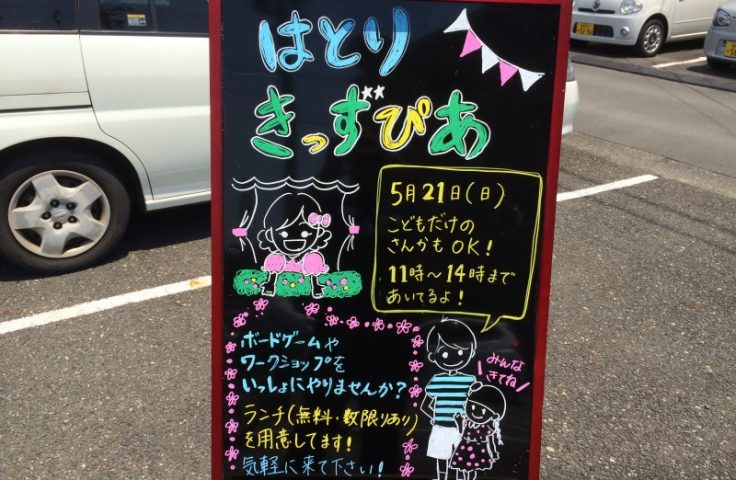 はとり
きっずぴあ
5月21日(日)
こどもだけの
さんかもOK!
11時〜14時まで
あいてるよ!
ボードゲームや
ワークショップを
いっしょにやりませんか?
ランチ(無料・数限りあり)
を用意してます!
気軽に来て下さい!
みんな
きてね